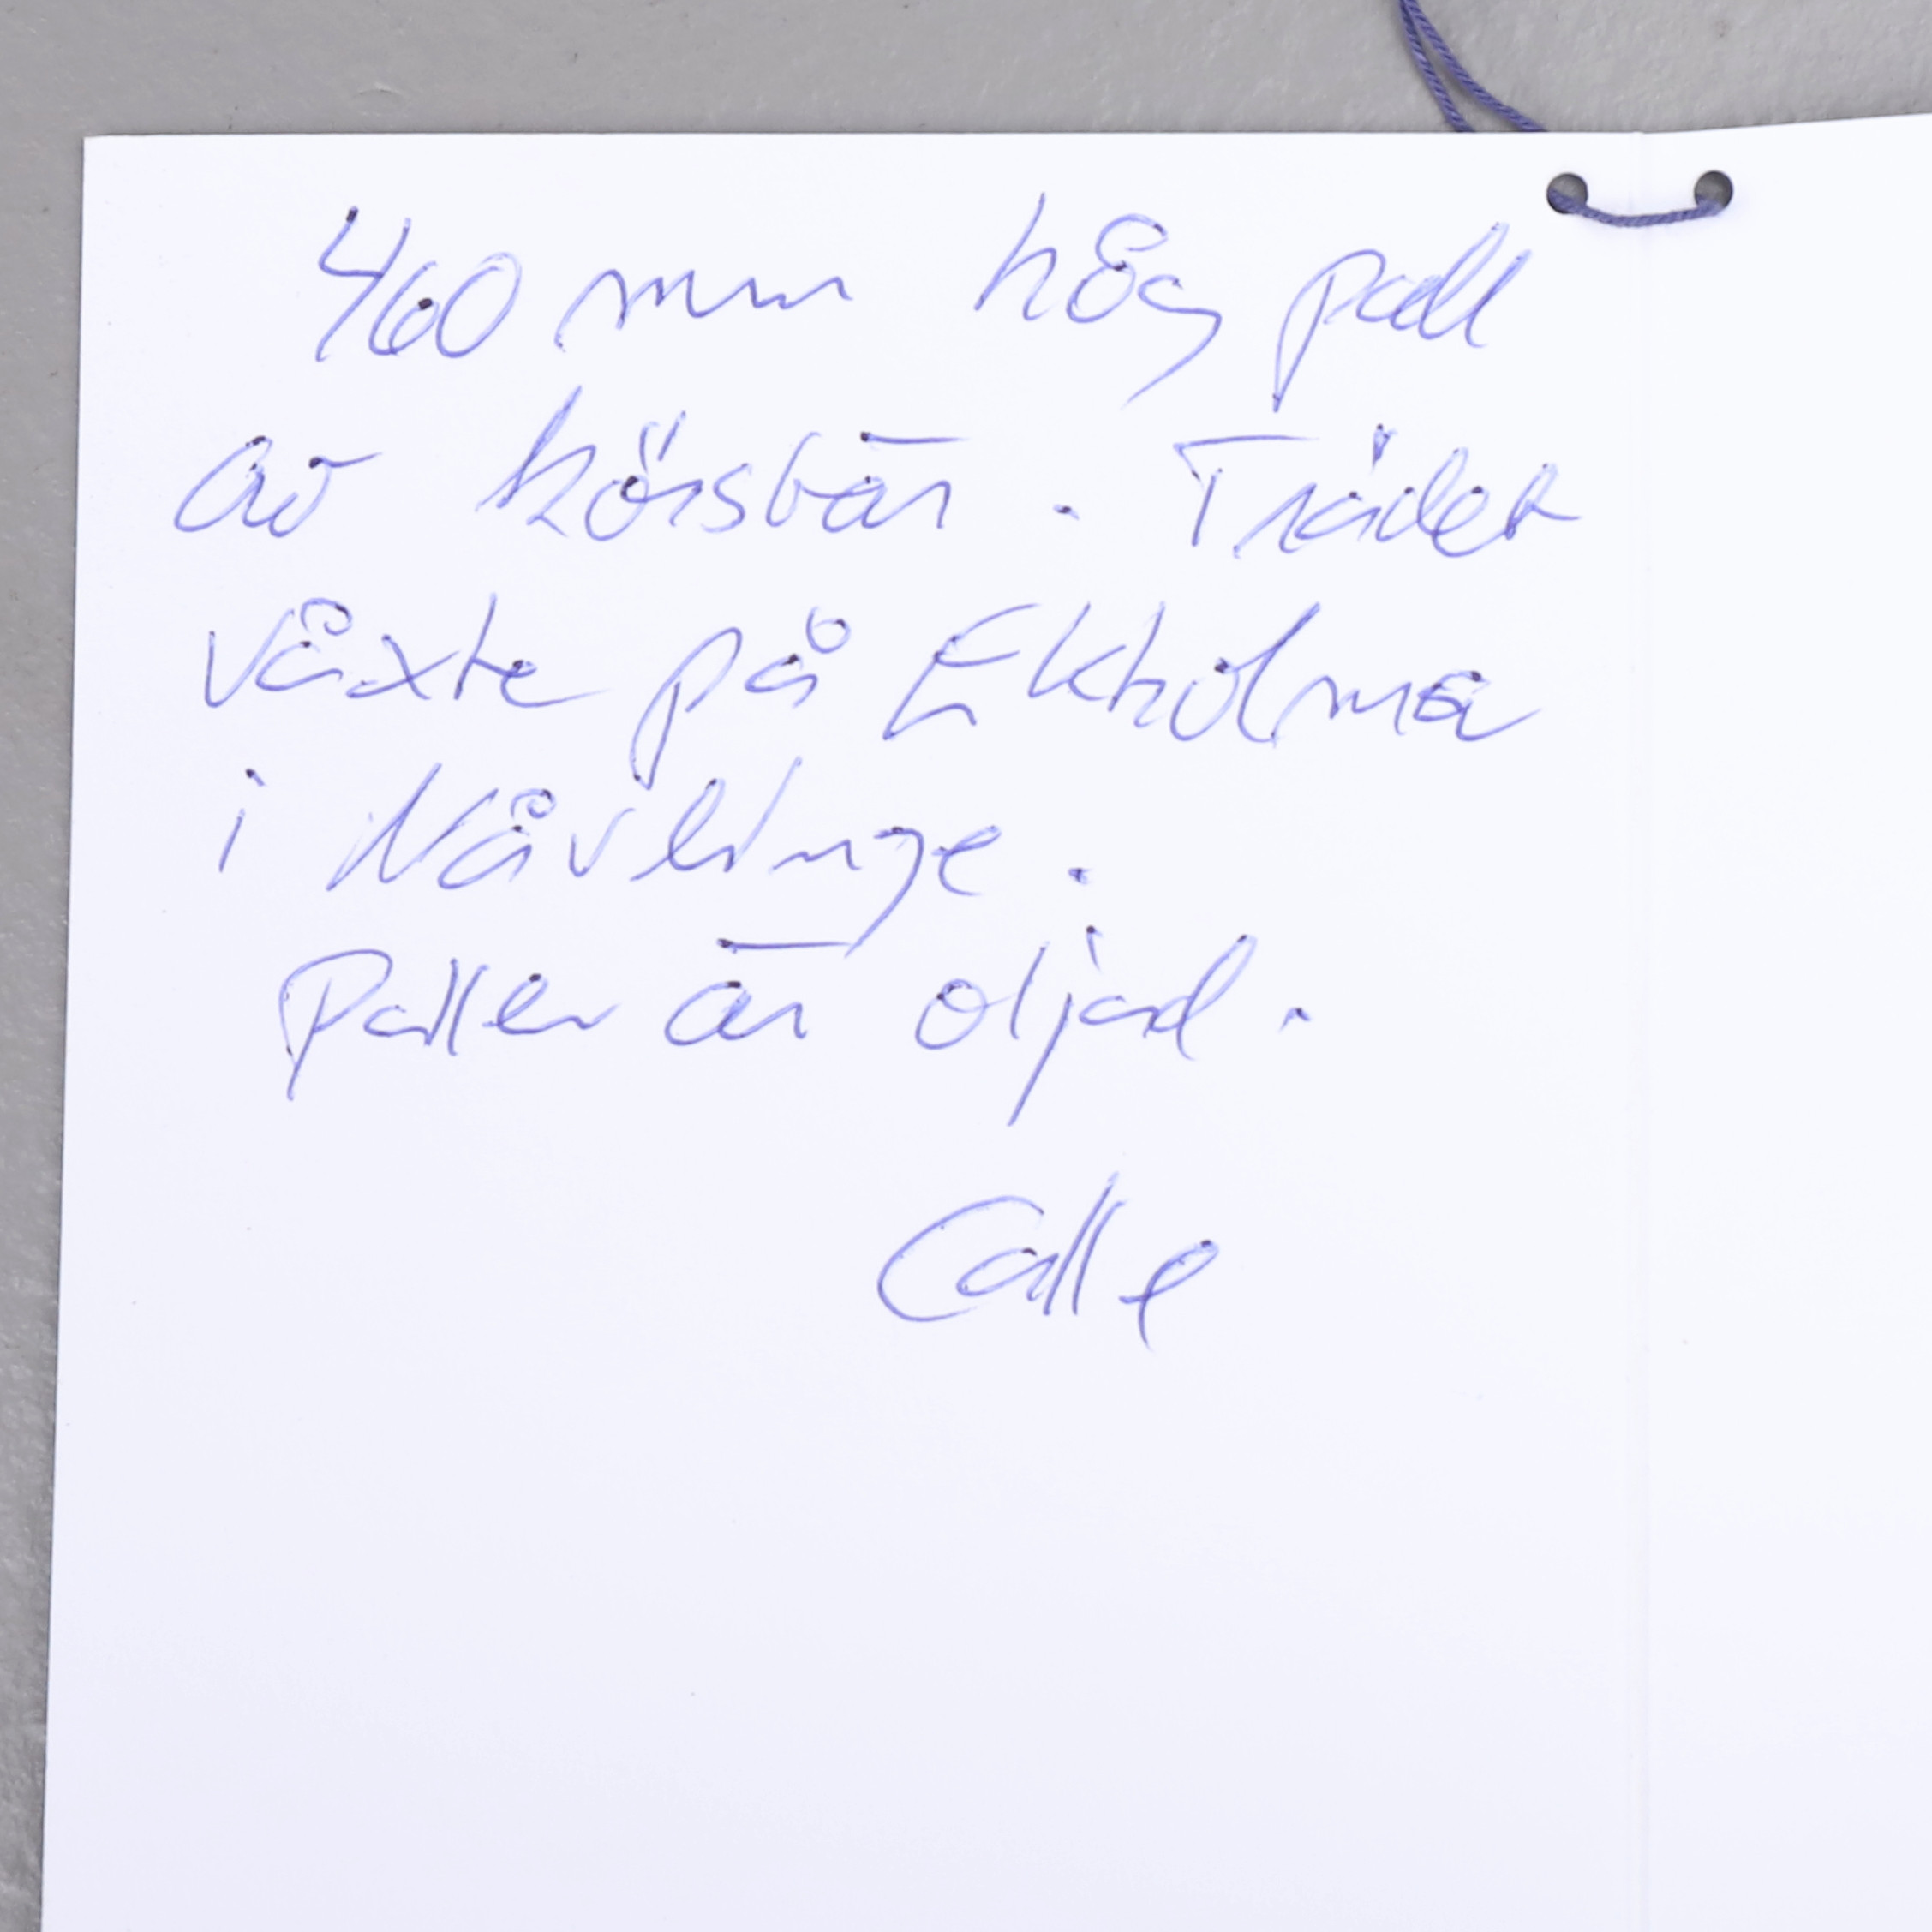 460 mm hög pall
av körsbär. Trädet
växte på Ekholma
i Nävlinge.
Pallen är oljad.
Calle